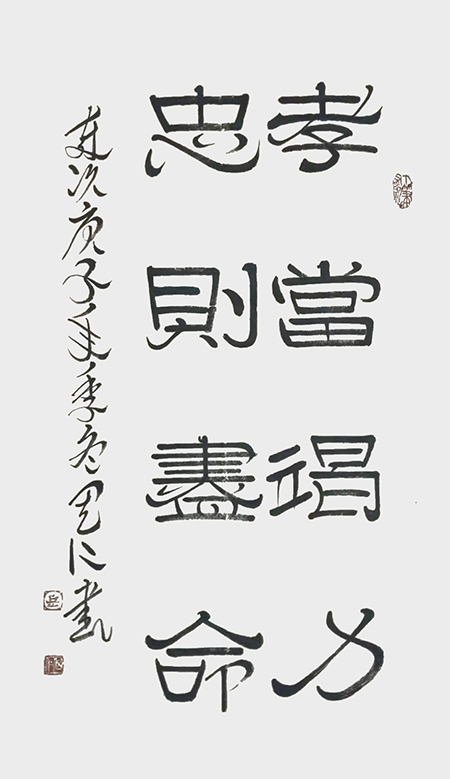 孝當竭力
忠則盡命
歲次庚子年季冬見仁書